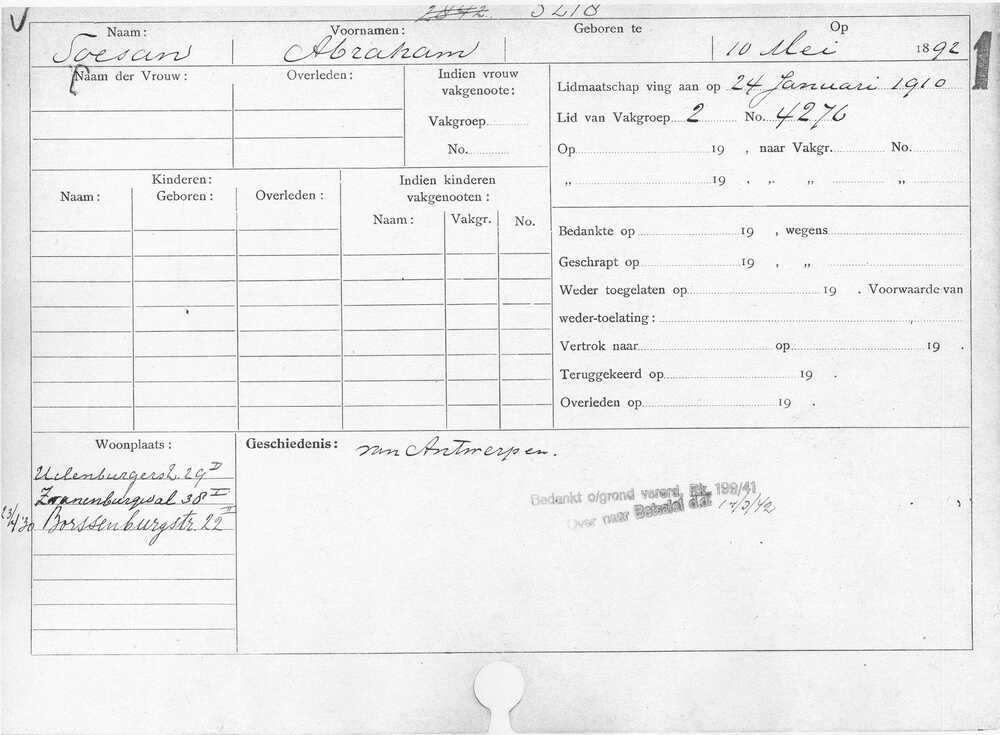 2842. 5210
Naam: Voornamen: Geboren te Op
Soesan Abraham 10 Mei 1892
1
Naam der Vrouw: Overleden: Indien vrouw vakgenoote:
Vakgroep
No.
Lidmaatschap ving aan op 24 Januari 1910
Lid van Vakgroep 2 No. 4276
Op 19 , naar Vakgr. No.
„ 19 , „ „ „
Kinderen: Indien kinderen vakgenooten:
Naam: Geboren: Overleden: Naam: Vakgr. No.
Bedankte op 19 , wegens
Geschrapt op 19 , „
Weder toegelaten op 19 . Voorwaarde van
weder-toelating:
Vertrok naar op 19 .
Teruggekeerd op 19 .
Overleden op 19 .
Woonplaats:
Uilenburgerst. 29 II
Zwanenburgwal 38 I
23/4 '30 Borssenburgstr. 22 II
Geschiedenis: van Antwerpen.
Bedankt o/grond verord. Rk. 199/41
Over naar d.d. 17/3/42